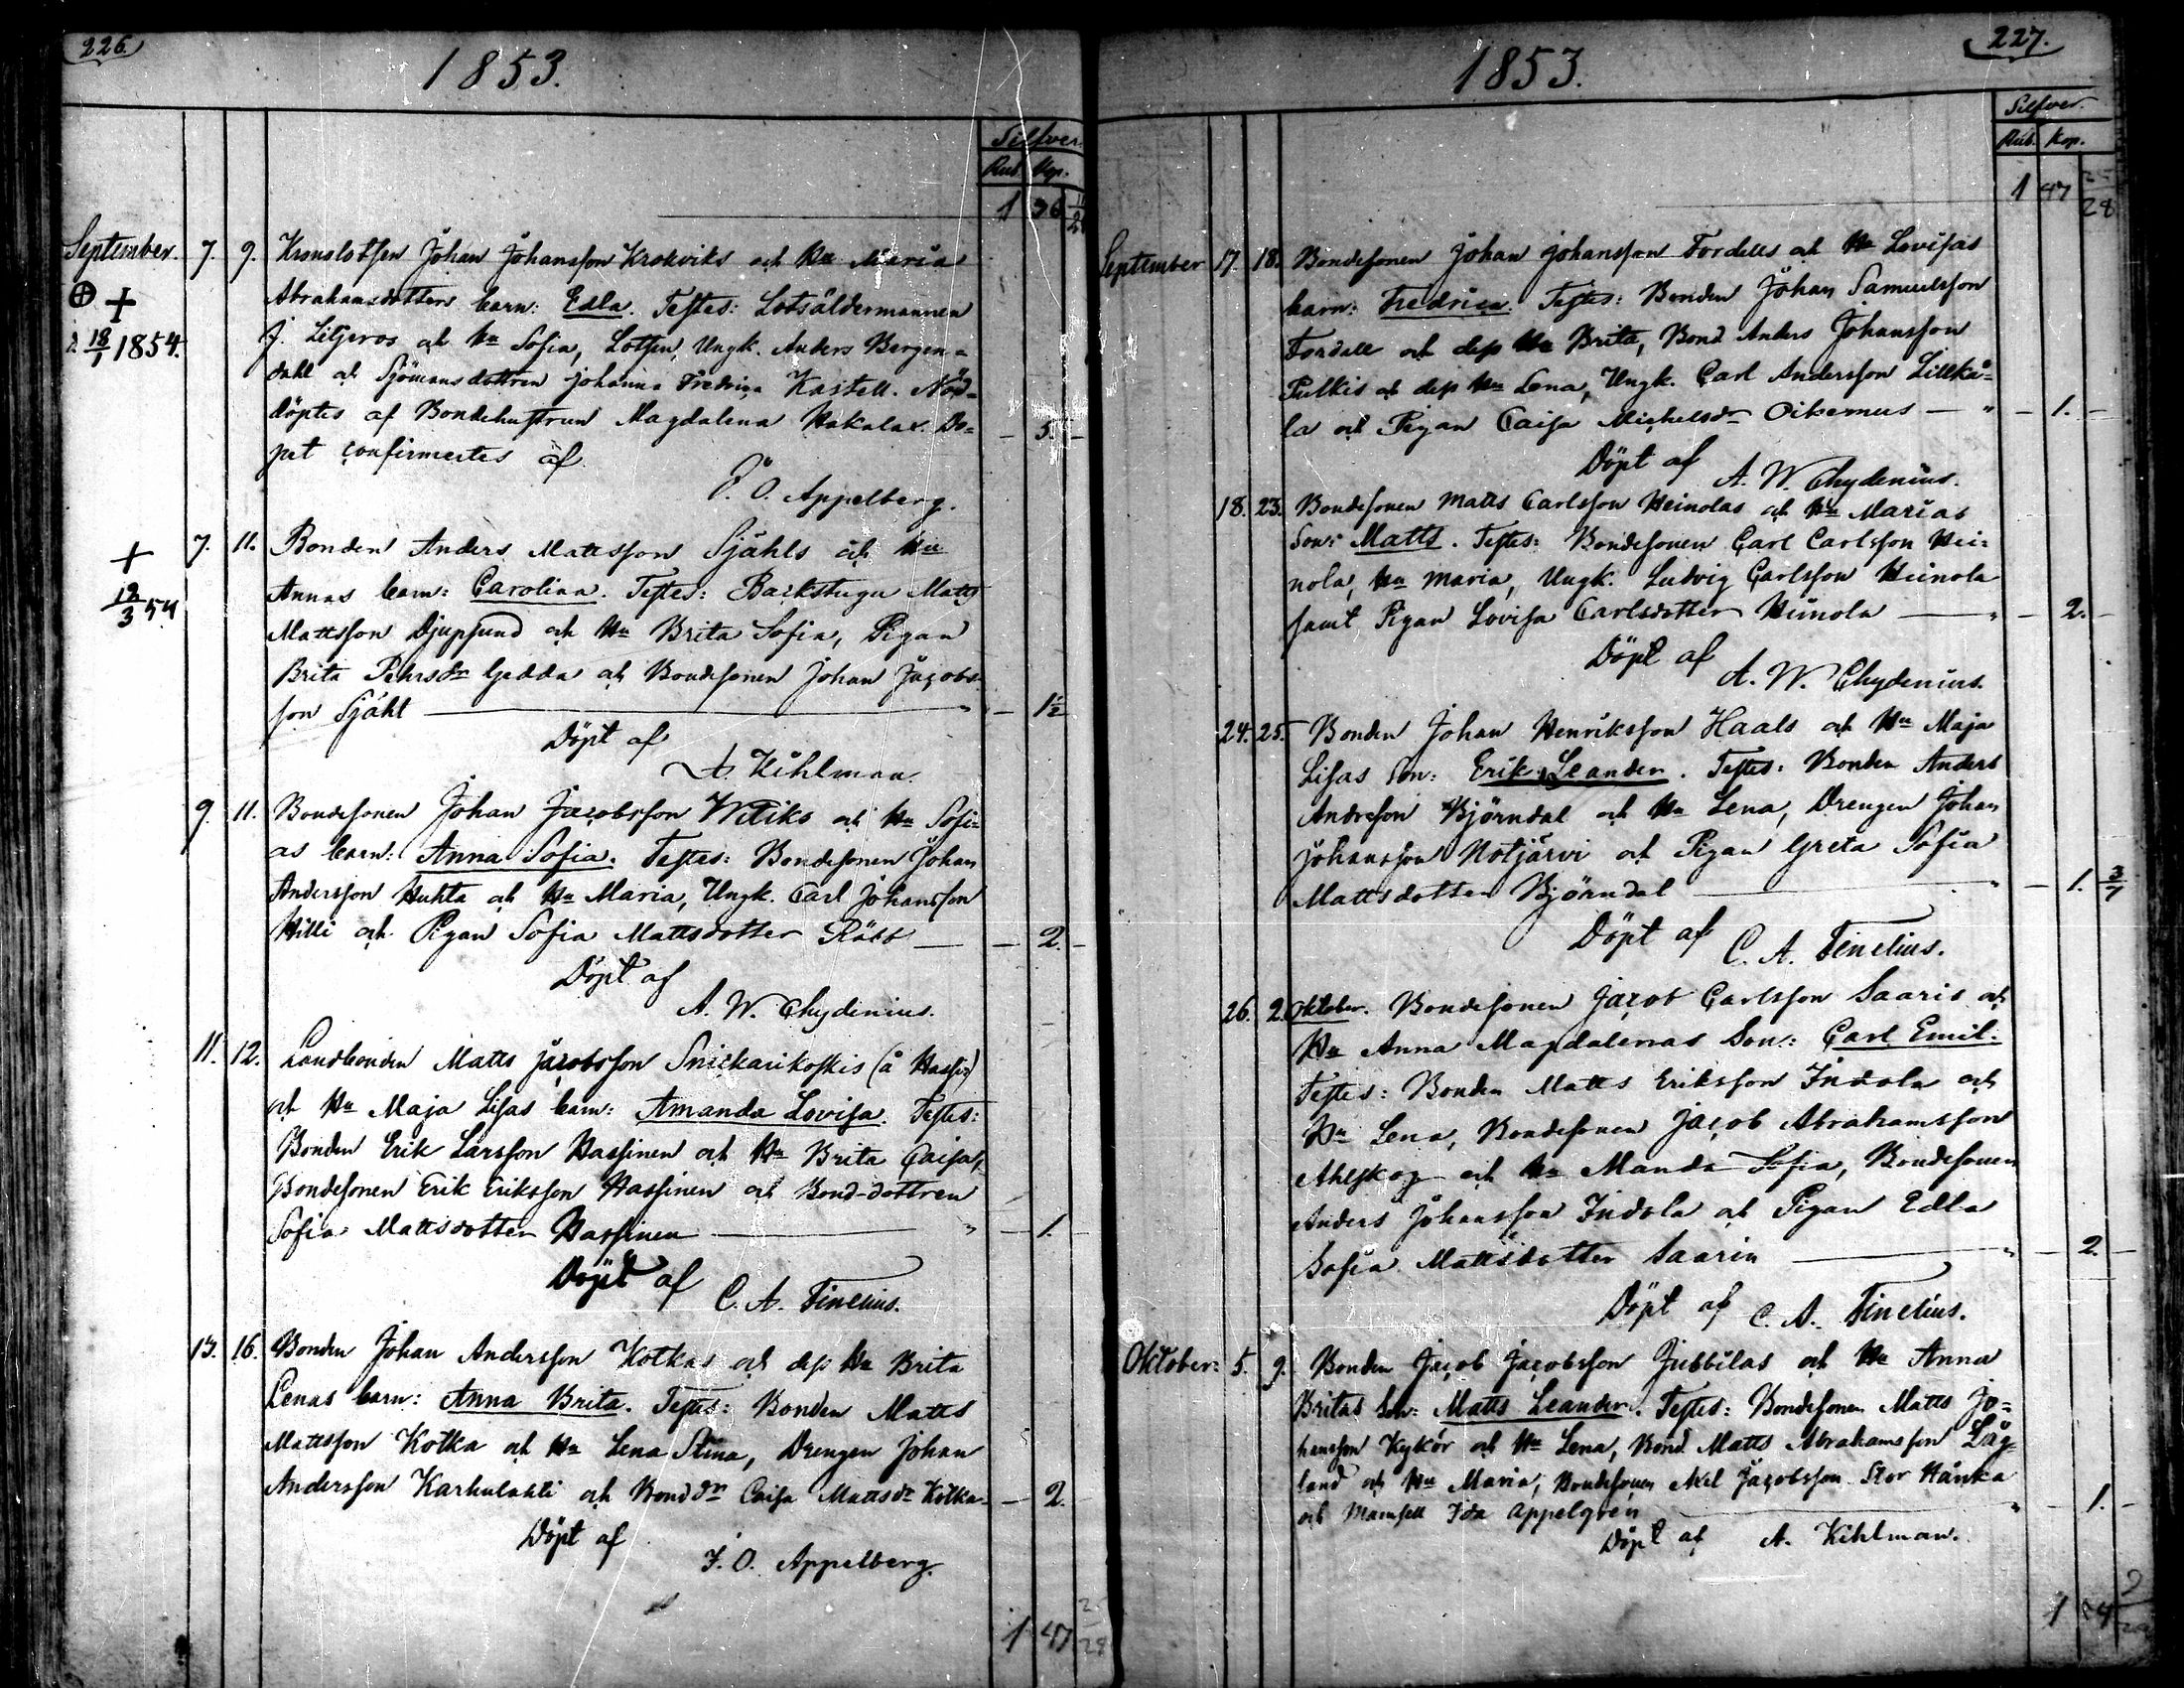 226.
1853.
Silfver.
Rub. Kop.
1 36 11/28
September. 7. 9. Kronolotsen Johan Johansson Krokviks och Hu Maria
Abrahamsdotters barn: Edla. Testes: Lotsåldermannen
J. Litjeros och Hu Sofia, Lotsen, Ungk. Anders Bergen=
+ d. 18/1 1854.
dahl och Sjömansdottren Johanna Fredrica Kastell. Nöd=
döptes af Bondehustrun Magdalena Hakalax. Do= – 5. –
pet confirmertes af
J. O. Appelberg.
7. 11. Bonden Anders Mattsson Sjåhls och Hu
+ 12/3 54
Annas barn: Carolina. Testes: Backstugu Matts
Mattsson Djupsund och Hu Brita Sofia, Pigan
Brita Pehrsdr Gedda och Bondesonen Johan Jacobs-
son Sjåhl – " – 1½
Döpt af
A. Kihlman.
9. 11. Bondesonen Johan Jacobsson Witiks och Hu Sofi=
as barn: Anna Sofia. Testes: Bondesonen Johan
Andersson Huhta och Hu Maria, Ungk. Carl Johansson
Hilli och Pigan Sofia Mattsdotter Räbb – – 2. –
Döpt af
A. W. Chydenius.
11. 12. Landbonden Matts Jacobsson Snickarikoskis (å Hassi)
och Hu Maja Lisas barn: Amanda Lovisa. Testes:
Bonden Erik Larsson Hassinen och Hu Brita Caisa,
Bondesonen Erik Eriksson Hassinen och Bond-dottren
Sofia Mattsdotter Hassinen – " – 1. –
Döpt af
C. A. Finelius.
13. 16. Bonden Johan Andersson Kotkas och dess Hu Brita
Lenas barn: Anna Brita. Testes: Bonden Matts
Mattsson Kotka och Hu Lena Stina, Drengen Johan
Andersson Karhulahti och Bonddn Caisa Mattsdr Kotka – – 2. –
Döpt af
J. O. Appelberg.
1 47 25/28
227.
1853.
Silfver.
Rub. Kop.
1 47 25/28
September 17. 18. Bondesonen Johan Johansson Fordells och Hu Lovisas
barn: Fredrica. Testes: Bonden Johan Samuelsson
Fordell och dess Hu Brita, Bond. Anders Johansson
Pulkis och dess Hu Lena, Ungk. Carl Andersson Lillkå=
la och Pigan Caisa Michelsdr Oikemus – " – 1. –
Döpt af
A. W. Chydenius.
18. 23. Bondesonen Matts Carlsson Heinolas och Hu Marias
Son: Matts. Testes: Bondesonen Carl Carlsson Hei=
nola, Hu Maria, Ungk. Ludvig Carlsson Heinola
samt Pigan Lovisa Carlsdotter Heinola – " – 2. –
Döpt af
A. W. Chydenius.
24. 25. Bonden Johan Henriksson Haals och Hu Maja
Lisas Son: Erik Leander. Testes: Bonden Anders
Andersson Björndal och Hu Lena, Drengen Johan
Johansson Notjärvi och Pigan Greta Sofia
Mattsdotter Björndal – " – 1. 3/7
Döpt af
C. A. Finelius.
26. 2. Oktober. Bondesonen Jacob Carlsson Saaris och
Hu Anna Magdalenas Son: Carl Emil.
Testes: Bonden Matts Eriksson Indola och
Hu Lena, Bondesonen Jacob Abrahamsson
Ahlskog och Hu Manda Sofia, Bondesonen
Anders Johansson Indola och Pigan Edla
Sofia Mattsdotter Saarin – " – 2. –
Döpt af
C. A. Finelius.
Oktober: 5. 9. Bonden Jacob Jacobsson Jubbilas och Hu Anna
Britas Son: Matts Leander. Testes: Bondesonen Matts Jo=
hansson Kykör och Hu Lena, Bond. Matts Abrahamsson Låg=
land och Hu Maria, Bondesonen Axel Jacobsson Stor Hånka
och Mamsell Ida Appelgren – " – 1. –
Döpt af A. Kihlman.
1